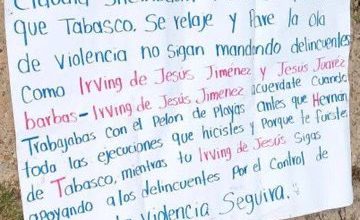 que Tabasco. Se relaje y Pare la ola
de violencia no Sigan mandando delincuentes
Como Irving de Jesús Jiménez y Jesús Juárez
barbas - Irving de Jesús Jimenez acuerdate Cuando
Trabajabas con el Pelon de Playas antes que Hernan
toda las ejecuciones que hicisles y Porque te fuiste
de Tabasco, mientras tu Irving de Jesús Sigas
apoyando a los delincuentes Por el Control de
la Violencia Seguira.